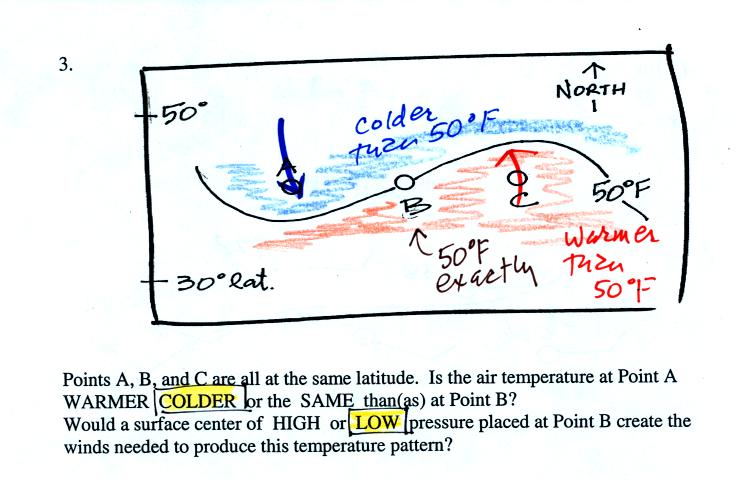 3.
↑
NORTH
50°
colder
than 50°F
A
B
C
50°F
50°F
exactly
warmer
than
50°F
30° lat.
Points A, B, and C are all at the same latitude. Is the air temperature at Point A
WARMER COLDER or the SAME than(as) at Point B?
Would a surface center of HIGH or LOW pressure placed at Point B create the
winds needed to produce this temperature pattern?